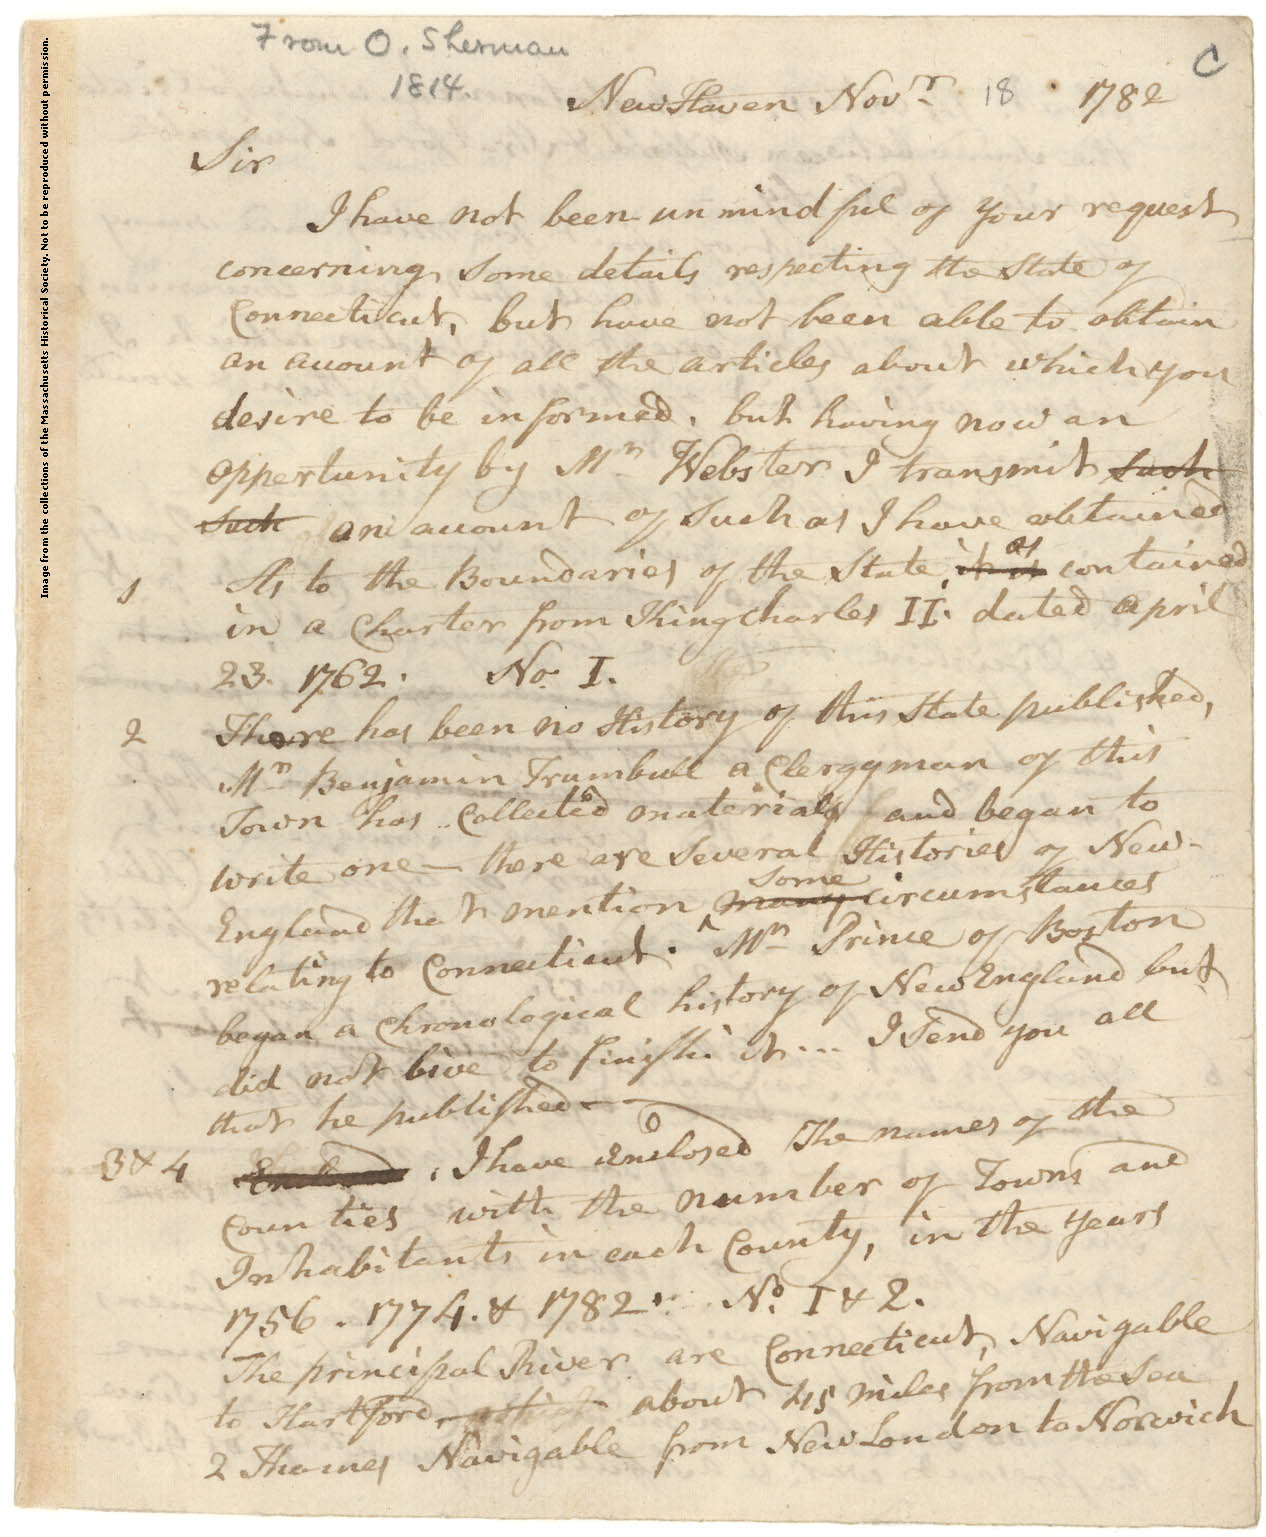 From O. Sherman
1814.
C
New Haven Novr. 18 1782
Sir
I have not been unmindful of your request
concerning some details respecting the State of
Connecticut, but have not been able to obtain
an account of all the articles about which you
desire to be informed. but having now an
oppertunity by Mr Webster I transmit such
such an account of such as I have obtained
1 As to the Boundaries of the State, it is as contained
in a Charter from King Charles II. dated April
23. 1762. No I.
2 There has been no History of this State published,
Mr Benjamin Trumbull a Clergyman of this
Town has Collected materials and began to
write one— there are several Histories of New-
England that mention many some circumstances
relating to Connecticut. Mr Prince of Boston
began a chronological history of New England but
did not live to finish it... I Send you all
that he published—
3 & 4 . I have enclosed The names of the
Counties with the number of Towns and
Inhabitants in each County, in the years
1756. 1774. & 1782. No. I & 2.
The principal River are Connecticut, Navigable
to Hartford, about 45 miles from the Sea
2 Thames Navigable from New London to Norwich
Image from the collections of the Massachusetts Historical Society. Not to be reproduced without permission.